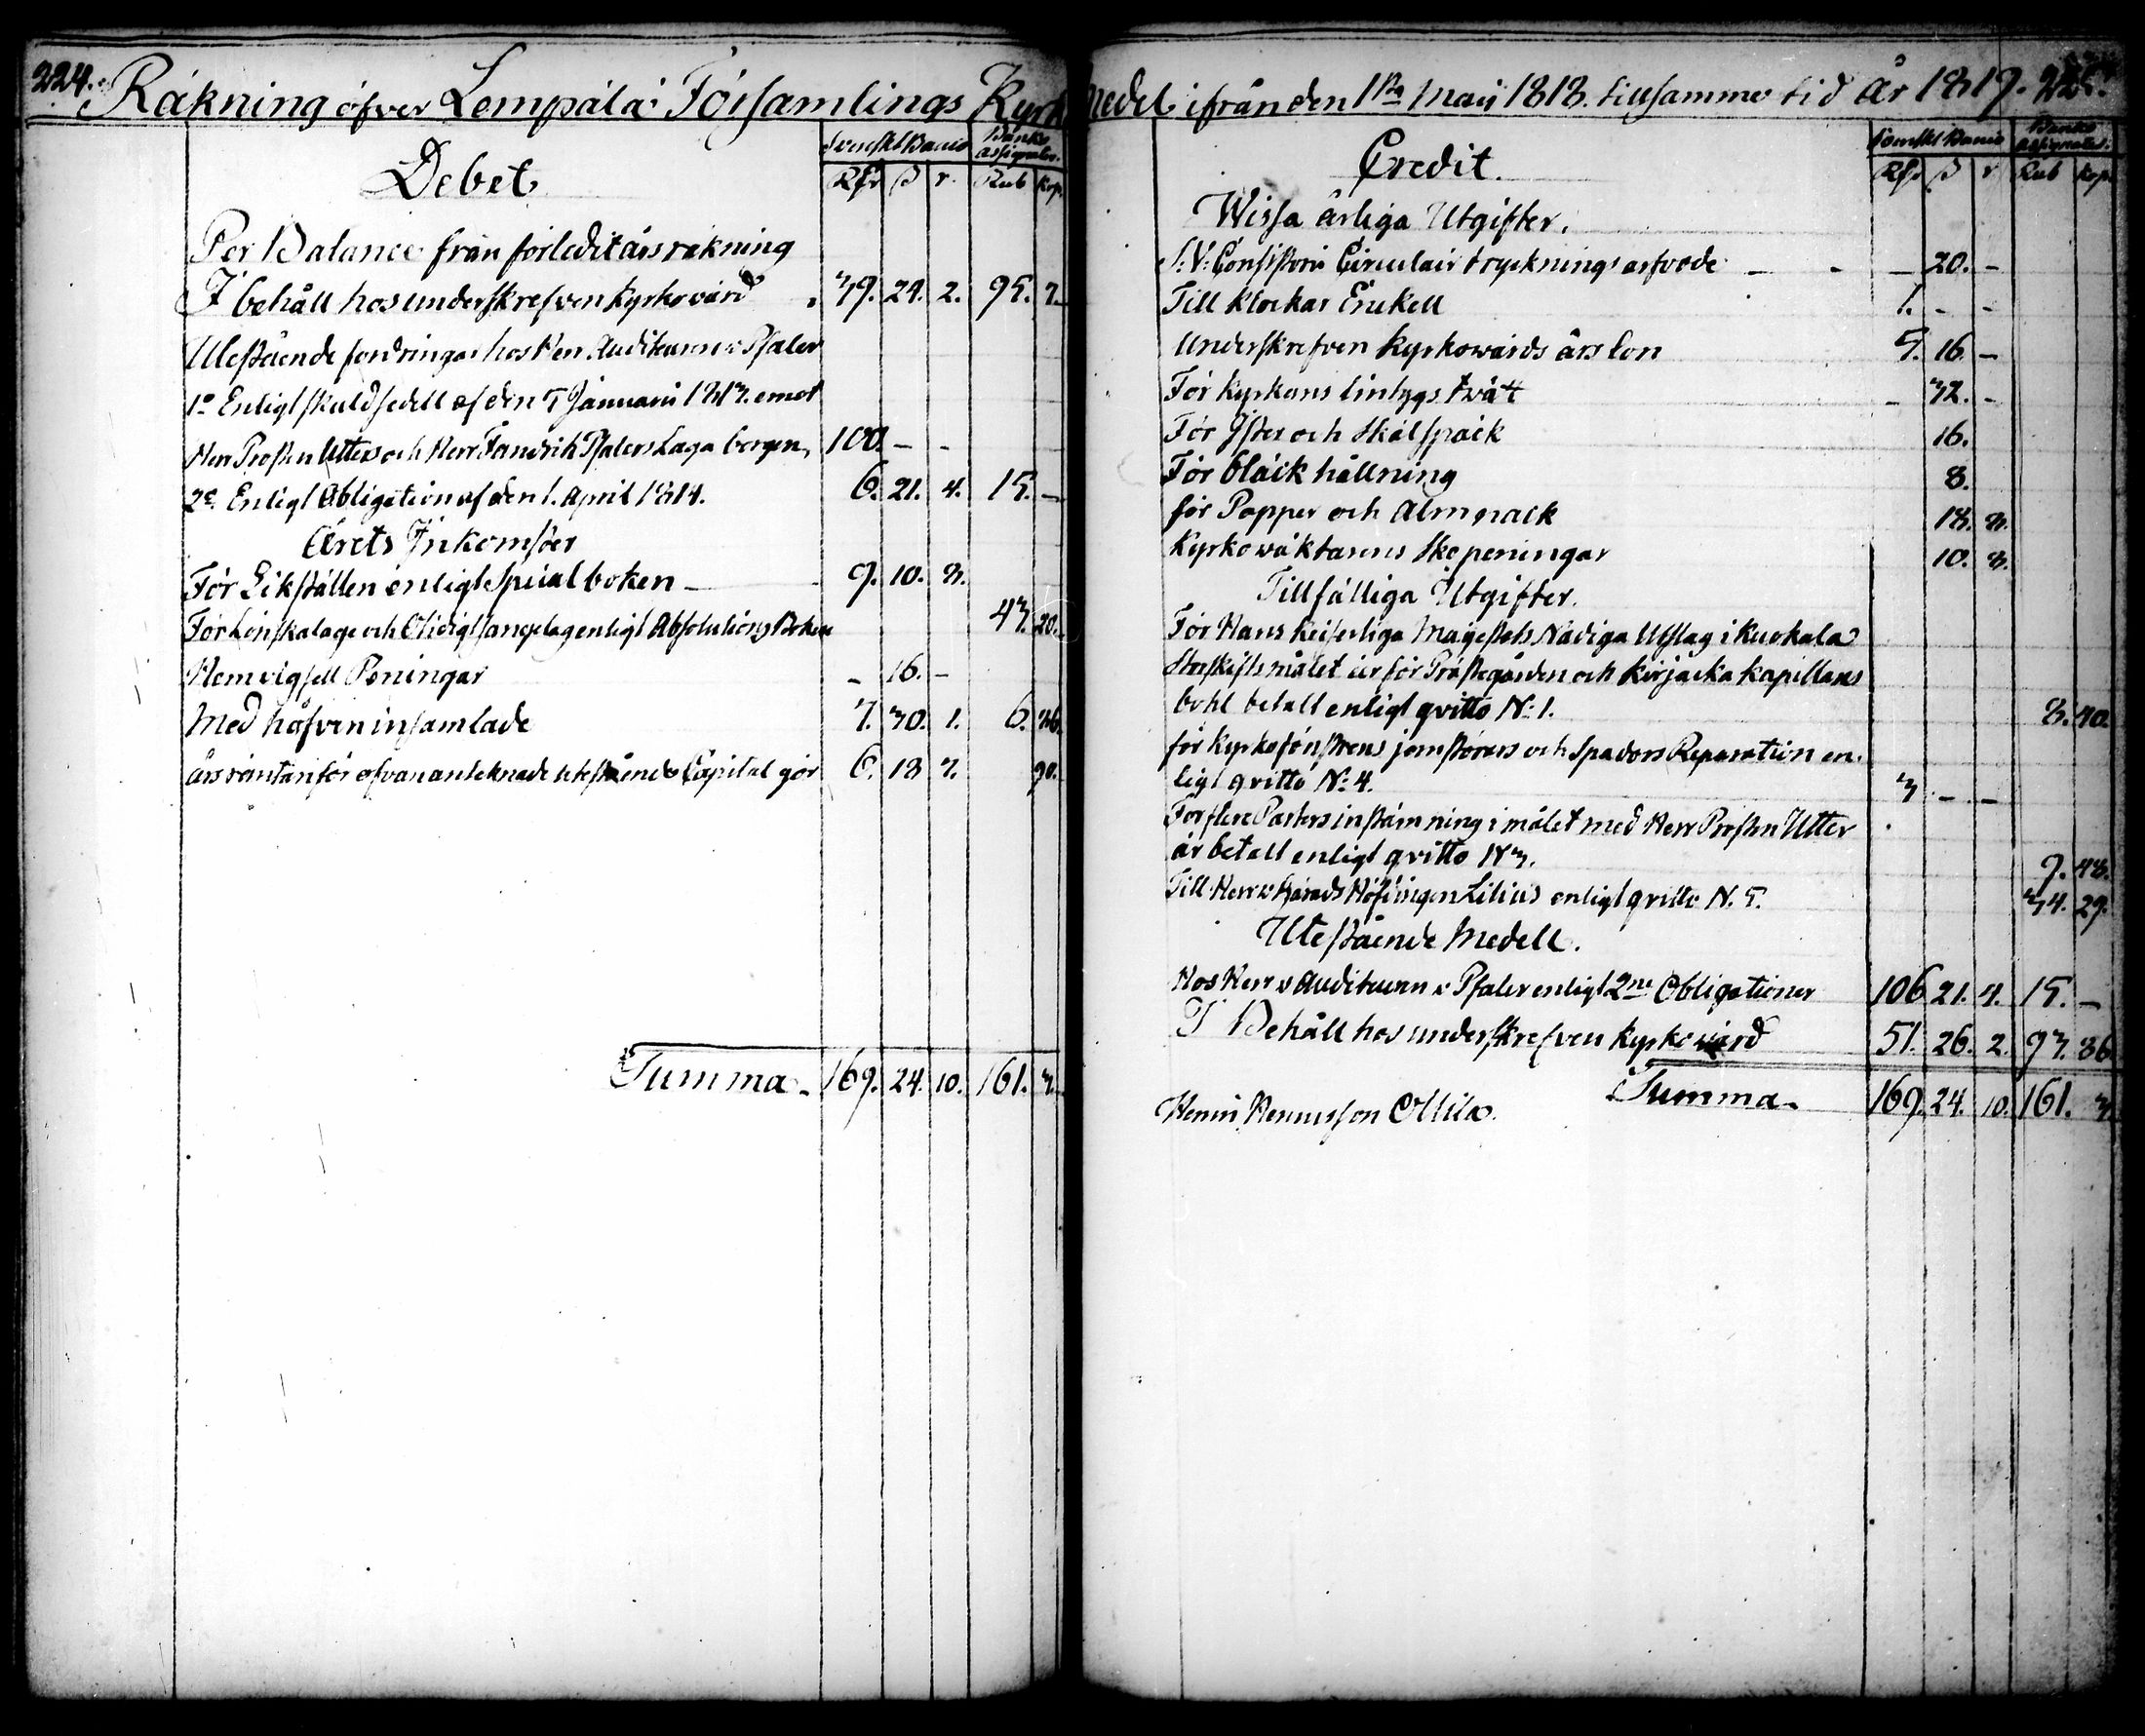 224. Räkning öfver Lempälä Församlings Kyrk
Debet
Svenskt Banco Banco assignater.
Rdr ß r. Rub kop.
Per Balance från förledit års räkning
I behåll hos underskrefven Kyrkovärd 39. 24. 2. 95. 7.
Utestående fordringar hos Herr Auditeuren v Pfaler
1o Enligt skuldsedell af den 5 Januarii 1813. emot
Herr Prosten Utters och Herr Fändrich Pfalers Laga borgen, 100. - -
2o Enligt Obligation af den 1. April 1814. 6. 21. 4. 15. -
Årets Inkomster
För Likställen enligt Special boken - 9. 10. 8.
För Lönskalage och Otidigt sängelag enligt Absolutions Boken 43. 20.
Hemvigsell Peningar - 16. -
Med håfven insamlade 7. 30. 1. 6. 86.
års räntan för ofvan anteknade utestående Capital gör 6. 18 7. 90.
Summa. 169. 24. 10. 161. 3.
medel ifrån den 1sta Maii 1818. till samme tid År 1819. 225.
Credit.
Svenskt Banco Banco assignater.
Rdr ß r Rub kop.
Wissa årliga Utgifter.
S: V: Consistorii Circulair trycknings arfvode - - - 20. -
Till Klockar Enckell 1. - -
Underskrefven Kyrkowärds års lön 5. 16. -
För Kyrkans lintygs twätt - 32. -
För Ister och Skålspäck 16.
För bläck hållning 8.
för Papper och Almnack 18. 8.
Kyrkowäktarens Skopeningar 10. 8.
Tillfälliga Utgifter.
För Hans Keiserliga Majestets Nådiga Utslag i Kuokala
Storskifts målet är för Prästegården och Kirjacka Kapellans
bohl betalt enligt qvitto N: 1. 8. 40.
för Kyrkofönstrens jemstörars och Spadars Reparation en-
ligt qvitto N: 4. 3 - -
För flere Parters instämning i målet med Herr Prosten Utter
är betalt enligt qvitto N 3. 9. 48.
Till Herr v Härads Höfdingen Lilius enligt qvitto N. 5. 34. 29.
Utestående Medell.
Hos Herr v Auditeuren v Pfaler enligt 2ne Obligationer 106 21. 4. 15. -
I Behåll hos underskrefven Kyrkovärd 51. 26. 2. 93. 86
Summa. 169. 24. 10. 161. 3
Henric Henricsson Ollila.